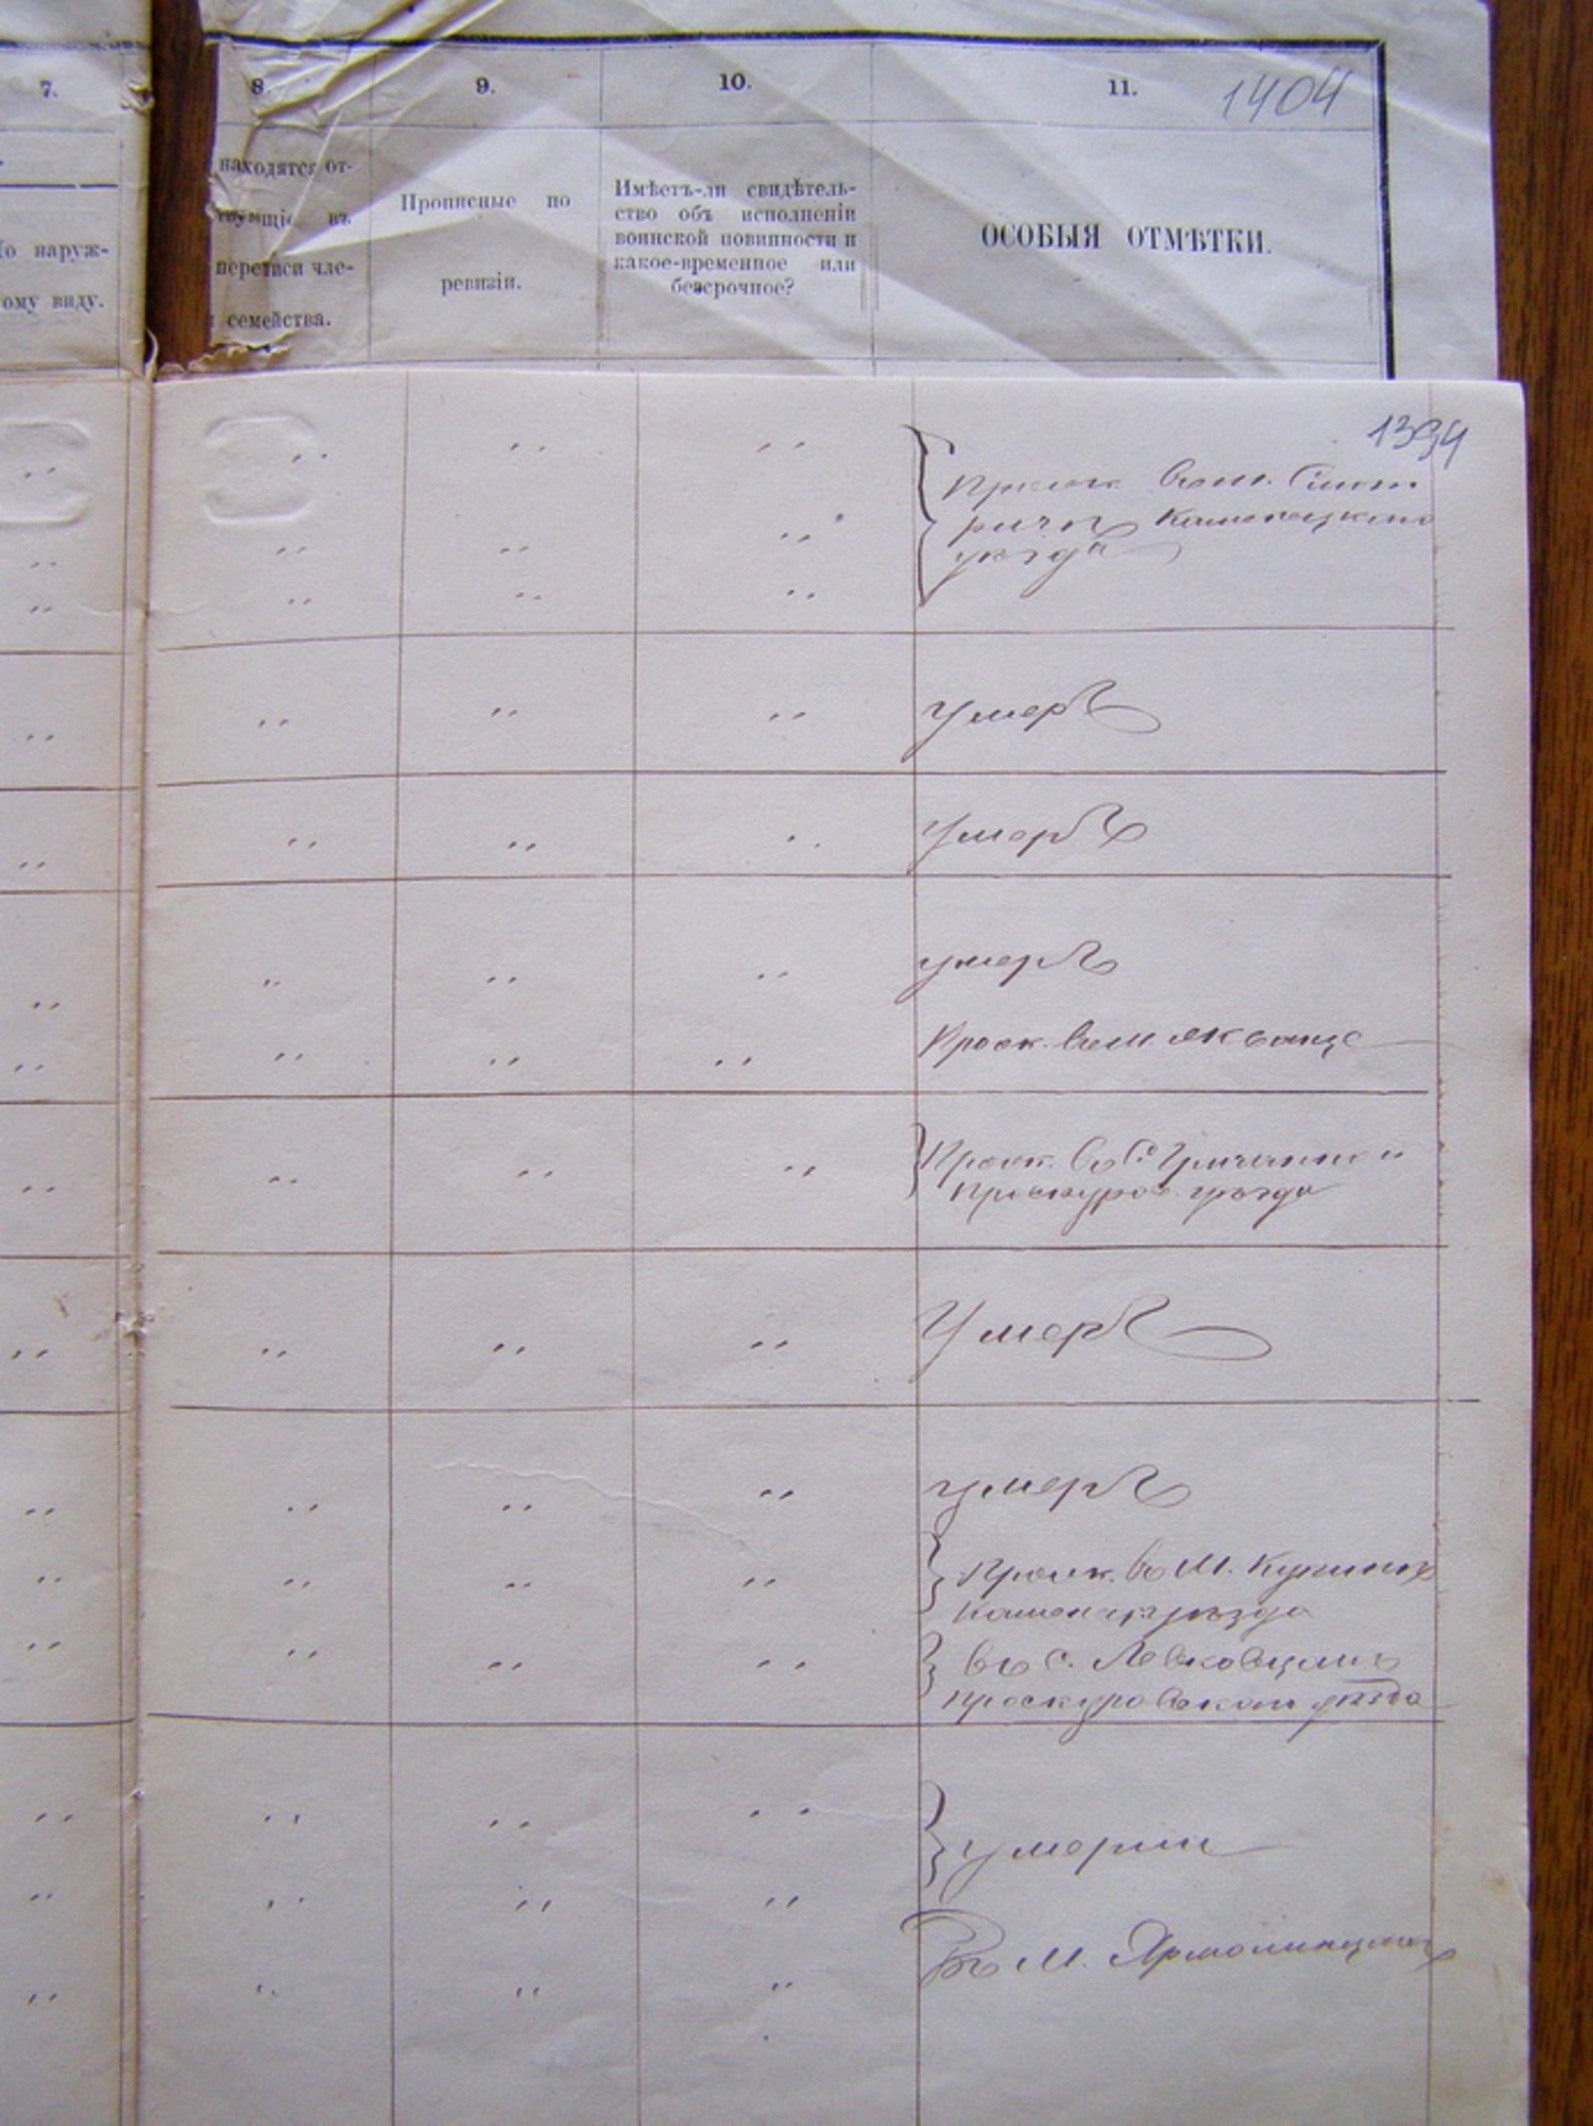 7.
8.
9.
10.
11.
1404
находятся от-
вующіе въ
переписи чле-
семейства.
о наруж-
ому виду.
Прописные по
ревизіи.
Имѣетъ-ли свидѣтель-
ство объ исполненіи
воинской повинности и
какое-временное или
безсрочное?
ОСОБЫЯ ОТМѢТКИ.
1394
Прож. въ м. Смот
ричѣ Каменецкаго
уѣзда
умеръ
Умеръ
умеръ
Прож. въ м.
Прож. въ с.
Проскуров. уѣзда
Умеръ
умеръ
Прож. въ М. Купинѣ
Каменец. уѣзда
въ с. Левковцахъ
Проскуровском уѣзда
умерли
Въ М. Ярмолинцахъ